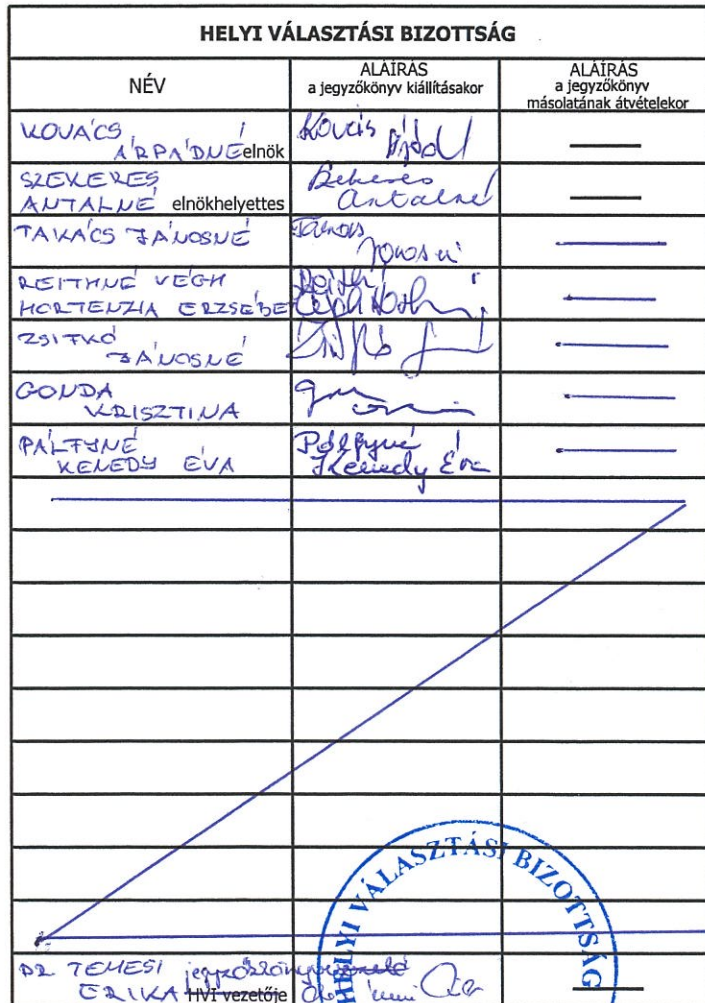 HELYI VÁLASZTÁSI BIZOTTSÁG
NÉV
ALÁÍRÁS
a jegyzőkönyv kiállításakor
ALÁÍRÁS
a jegyzőkönyv
másolatának átvételekor
KOVÁCS
ÁRPÁDNÉ elnök
Kovács
SZEKERES
ANTALNÉ elnökhelyettes
Szekeres
Antalné
TAKÁCS JÁNOSNÉ
Takács
Jánosné
REITHNÉ VÉGH
HORTENZIA ERZSÉBET
ZSITKÓ
JÁNOSNÉ
GONDA
KRISZTINA
PÁLFYNÉ
KENEDY ÉVA
Pálfyné
Kenedy Éva
DR TEMESI jegyzőkönyvvezető
ERIKA HVI vezetője
HELYI VÁLASZTÁSI BIZOTTSÁG